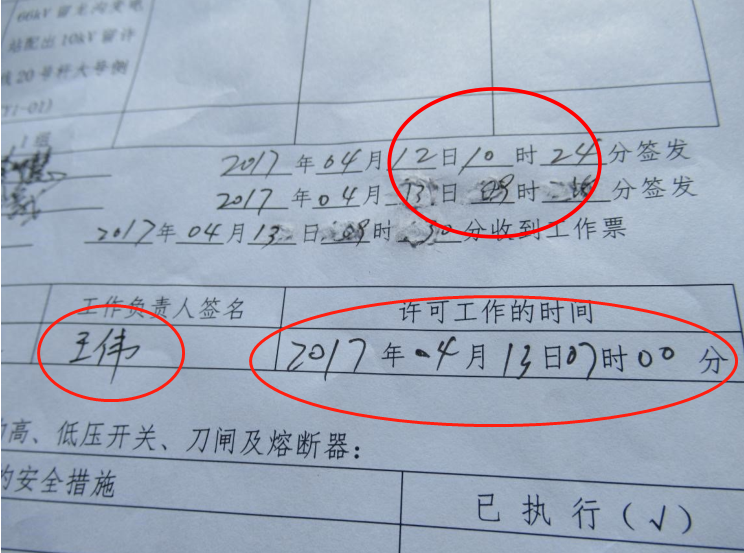 66kV留龙沟变电
站配出10kV留许
线20号杆大号侧
01)
1组
2017年04月12日10时24分签发
2017年04月13日09时分签发
2017年04月13日09时30分收到工作票
工作负责人签名 许可工作的时间
王伟 2017年04月13日07时00分
高、低压开关、刀闸及熔断器：
的安全措施 已执行(√)